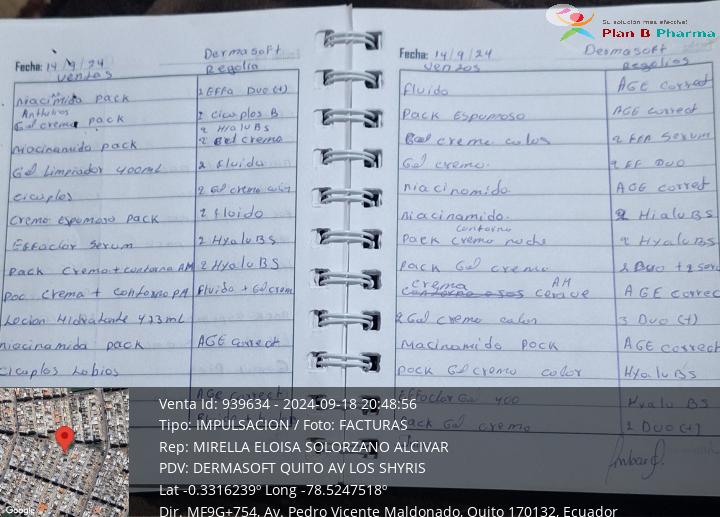 Su solución más efectiva!
Plan B Pharma
Fecha: 14/9/24 Dermasoft
Ventas Regalia
niacimida pack 2 EFFA DUO (+)
Anthelios
Gel crema pack 2 Cicaplos B
2 Hialu BS
Niacinamida pack 2 Gel crema
Gel Limpiador 400ml 2 Fluido
Cicaplos 2 Gel crema color
Crema Espumosa pack 2 Floido
Effaclor Serum 2 Hyalu BS
Pack Crema + contorno AM 2 Hyalu BS
Crema + contorno PM Fluido + Gel crem
Locion Hidratante 473ml
Niacinamida pack AGE correct
Cicaplos Labios
AGE correct
Fecha: 14/9/24 Dermasoft
Ventas Regalias
Fluido AGE correct
Pack Espumoso AGE correct
Gel crema color 2 EFA Serum
Gel crema. 2 EF DUO
niacinamida AGE correct
niacinamida. 2 Hialu BS
contorno
Pack crema noche 2 Hyalu BS
Pack Gel crema 2 Duo + 2 ser
crema AM
cerave AGE correc
2 Gel crema color 3 Duo (+)
Niacinamida Pock AGE correct
pock Gel crema color Hyalu BS
Effaclor Gel 400 Hyalu BS
Pack Gel crema 2 DUO (+)
Venta Id: 939634 - 2024-09-18 20:48:56
Tipo: IMPULSACION / Foto: FACTURAS
Rep: MIRELLA ELOISA SOLORZANO ALCIVAR
PDV: DERMASOFT QUITO AV LOS SHYRIS
Lat -0.3316239º Long -78.5247518º
Dir. MF9G+754, Av. Pedro Vicente Maldonado, Quito 170132, Ecuador
Google